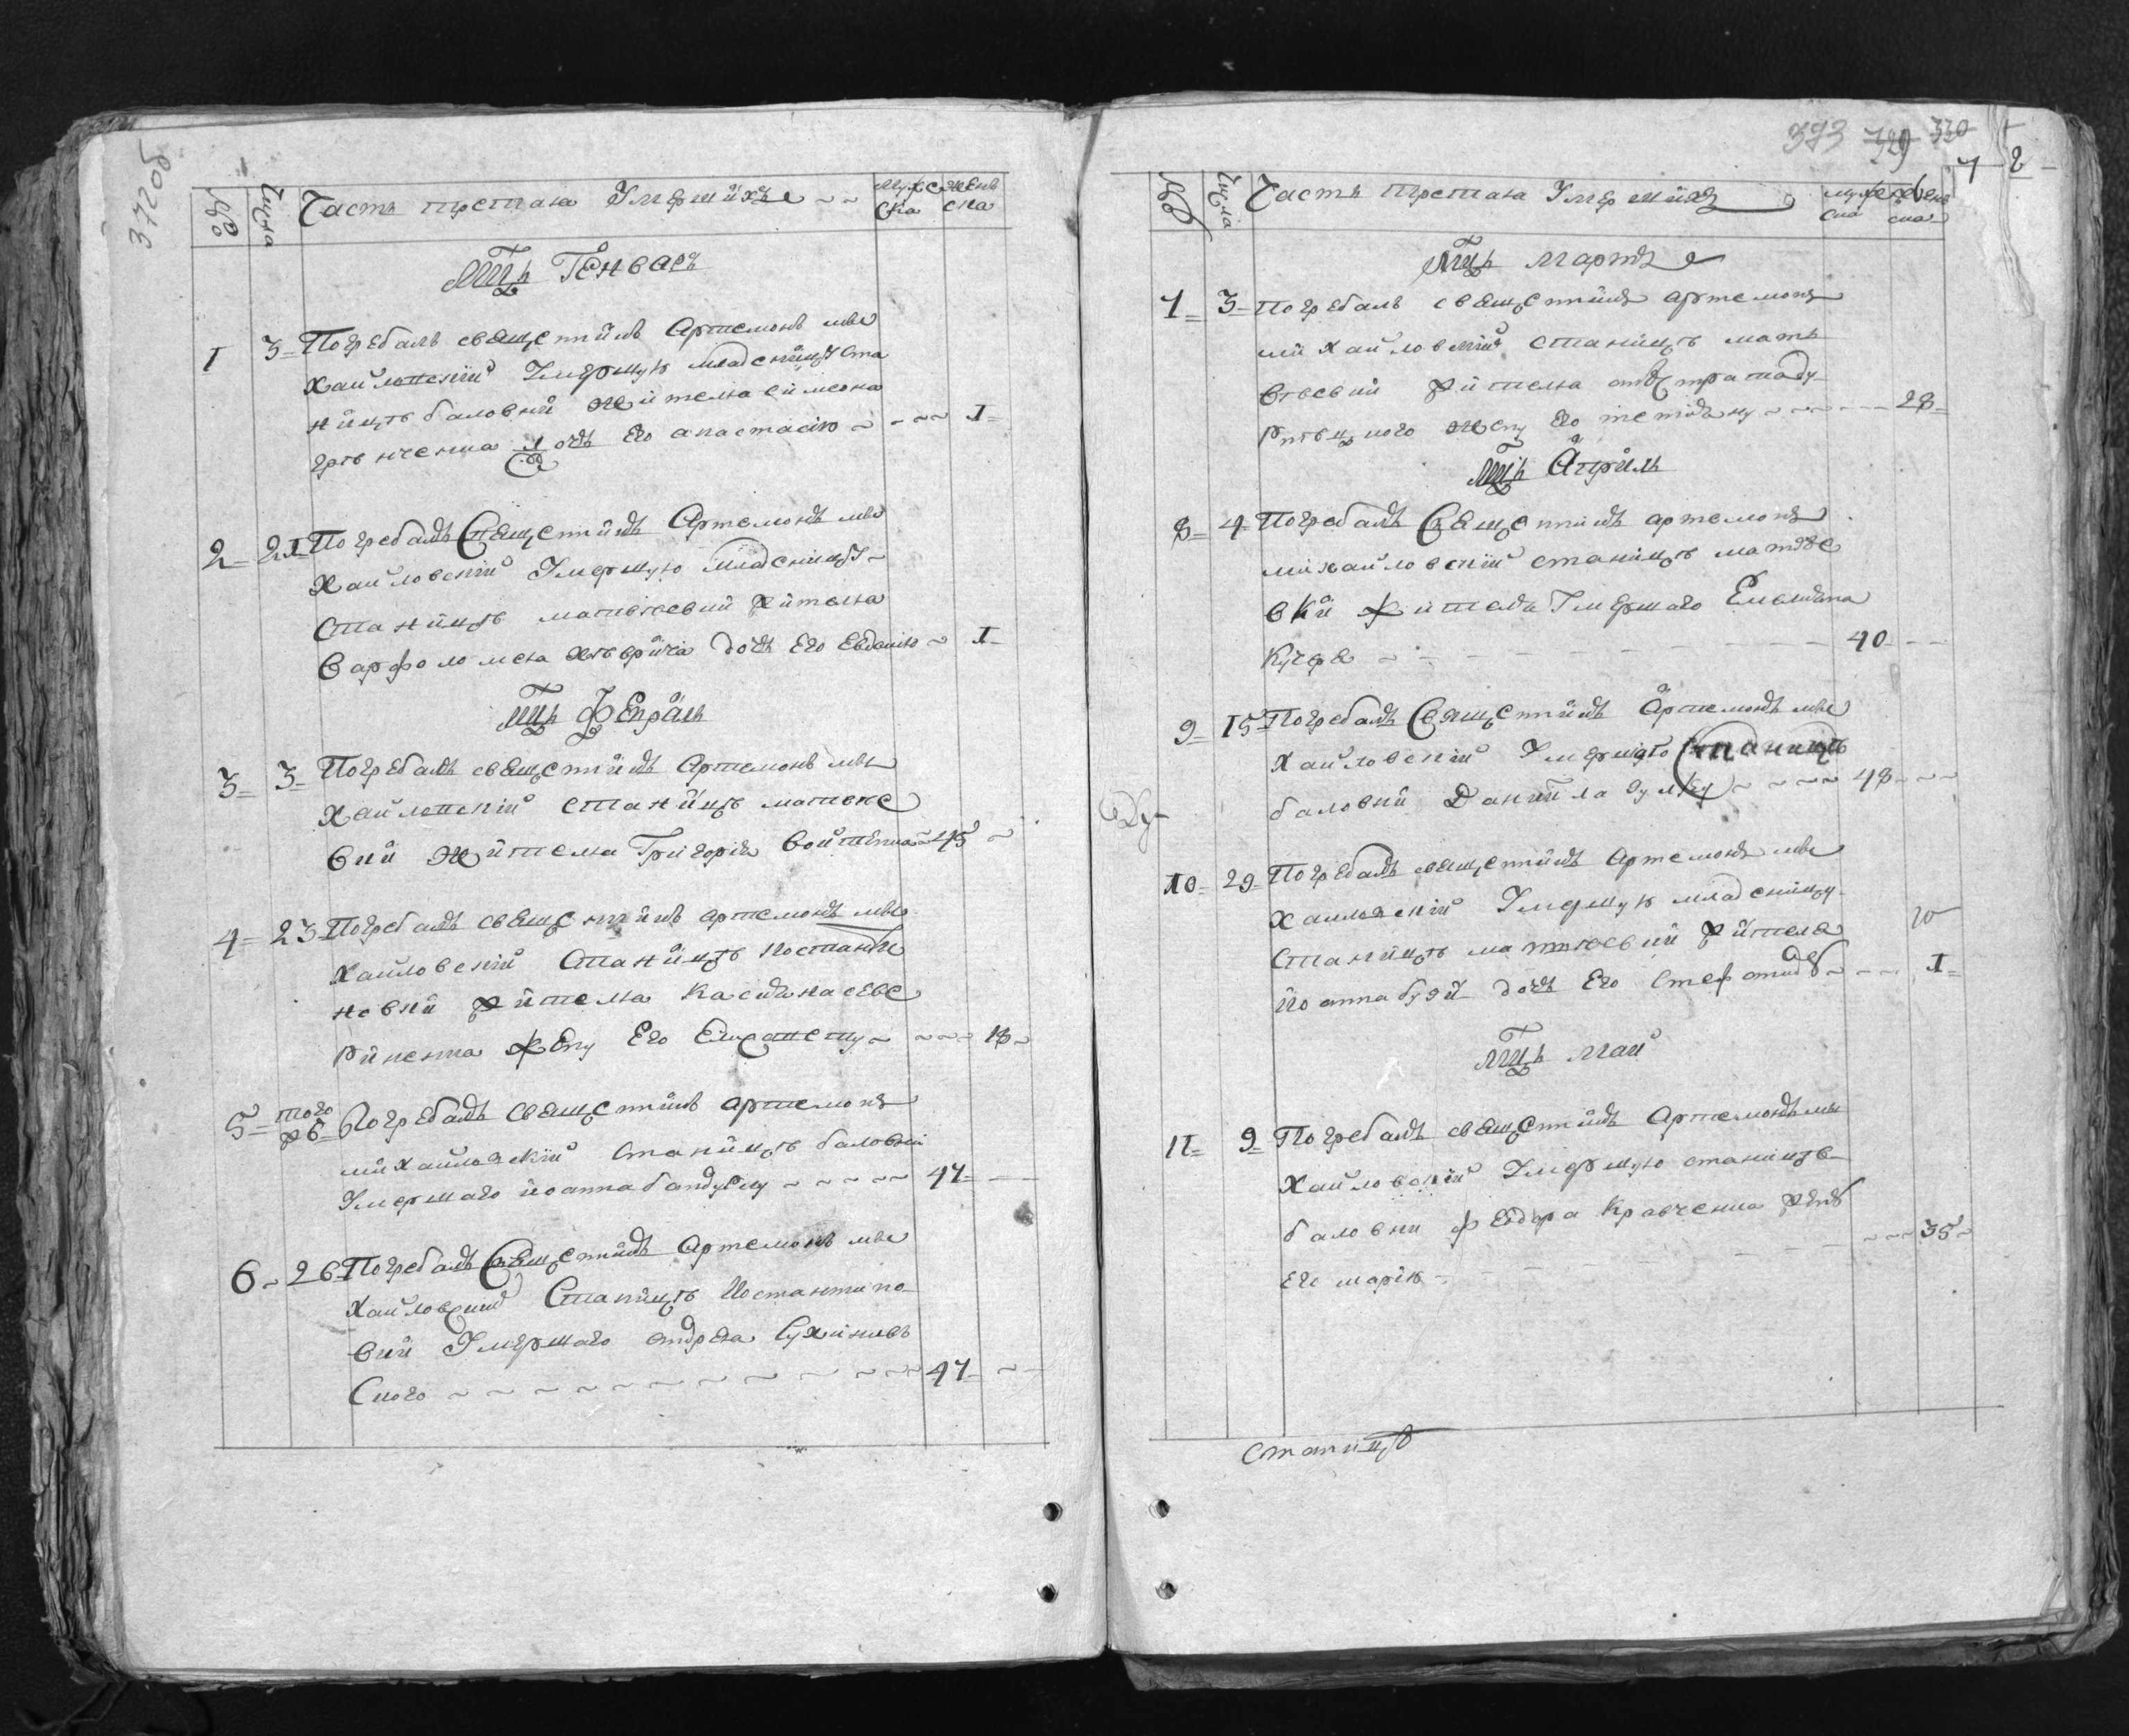 372об
№ Числа Часть третая Умершихъ Мужеска Женска
Мцъ Генварь
1 3 Погребалъ священникъ Артемонъ Ми
хайловский Умершую младеницу Ста
ницѣ баловной жителя симеона
дочь Его анастасию 1
2 21 Погребалъ Священникъ Артемонъ Ми
хайловский Умершую младеницу
Станицѣ матвѣевки жителя
варфоломея дочь Его Евдокию 1
Мцъ Февраль
3 3 Погребалъ священникъ Артемонъ Ми
хайловский станицѣ матвѣе
вки жителя Григория 45
4 23 Погребалъ священникъ артемонъ Ми
хайловский Станицѣ Константи
новки жителя касияна севе
риненка жену Его 18
5 того ж Погребалъ священникъ артемонъ
михайловский Станицѣ баловной
Умершаго иоанна бандурку 47
6 26 Погребалъ Священникъ Артемонъ Ми
хайловский Станицѣ Константино
вки Умершаго андрея Сухинов
ского 47
393 329 330
7 8
№ Числа Часть третая Умершихъ мужеска женска
Мцъ Мартъ
7 3 Погребалъ священникъ артемонъ
михайловский станицѣ матв
ѣевки жителя
жену Его 28
Мцъ Априль
8 4 Погребалъ Священникъ артемонъ
михайловский станицѣ матвѣе
вки жителя Умершаго Емельяна
40
9 15 Погребалъ Священникъ Артемонъ Ми
хайловский Умершаго Станицѣ
баловной Даниила 48
10 29 Погребалъ священникъ Артемонъ Ми
хайловский Умершую младеницу
Станицѣ матвѣевки жителя
иоанна дочь Его 1
Мцъ Май
11 9 Погребалъ священникъ Артемонъ Ми
хайловский Умершую станицѣ
баловни Феодора Кравченка жену
Его марию 35
Станицѣ